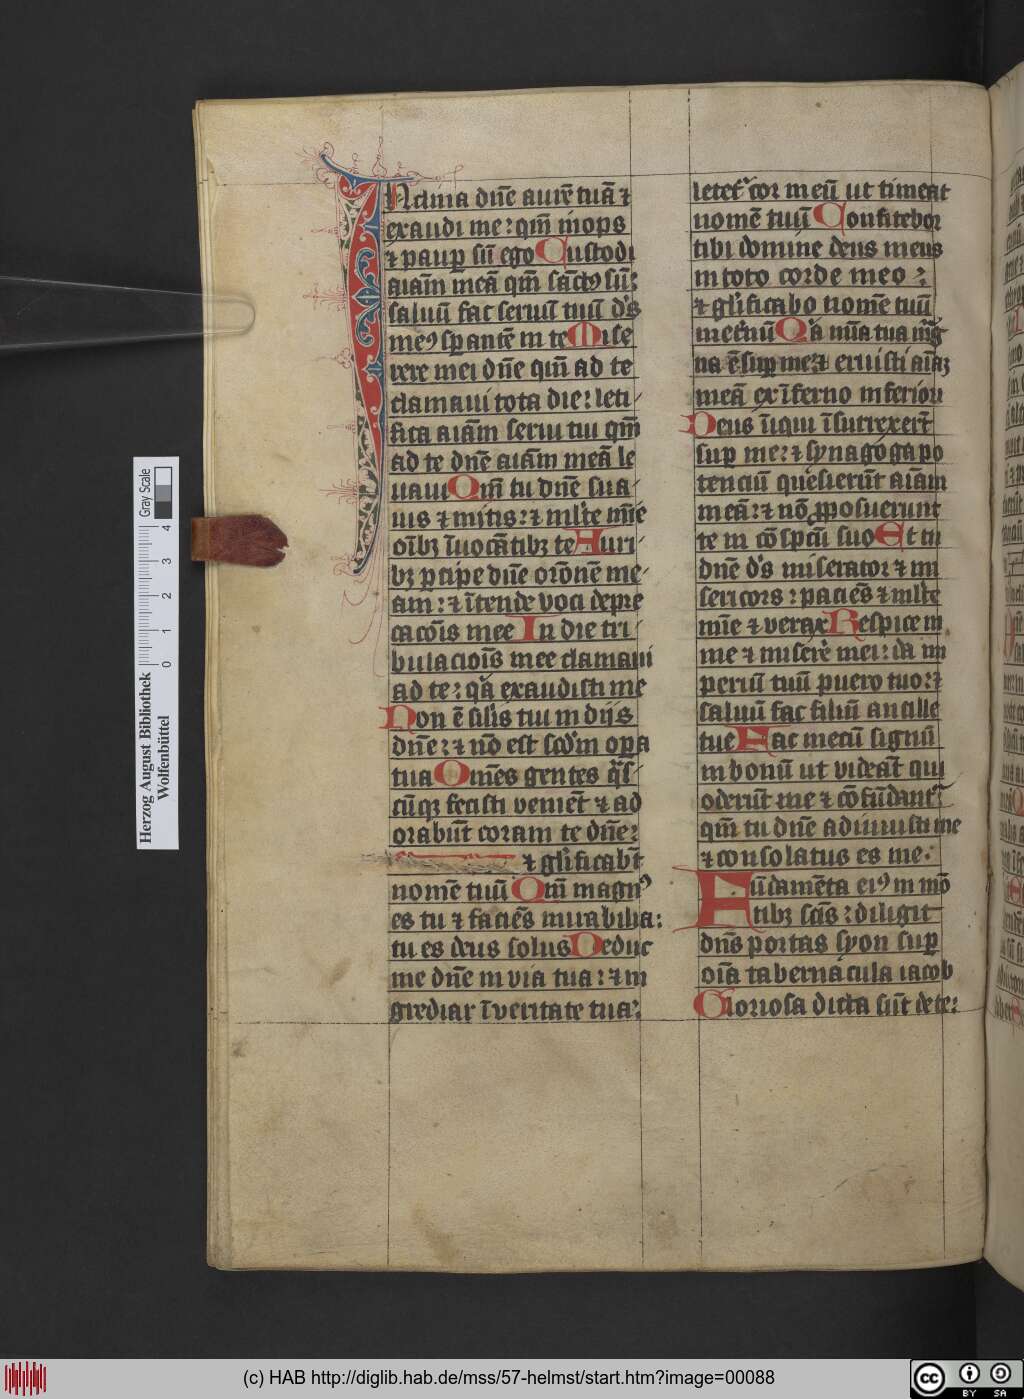 INclina dn̄e aurē tuā ⁊
exaudi me: qm̄ inops
⁊ paup̄ sū ego Custodi
aīam meā qm̄ sāctꝰ sū:
saluū fac seruū tuū ds̄
meꝰ sp̄antē in te Mise
rere mei dn̄e qm̄ ad te
clamaui tota die: leti
fica aīam serui tui qm̄
ad te dn̄e aīam meā le
uaui Qm̄ tu dn̄e sua
uis ⁊ mitis: ⁊ ml̄te mīe
oībꝫ īuocātibꝫ te Auri
bꝫ ꝑcipe dn̄e orōnē me
am: ⁊ ītende voci depre
cacōīs mee In die tri
bulacioīs mee clamaui
ad te: qa exaudisti me
Non ē silīs tui in dijs
dn̄e: ⁊ nō est scdm̄ oꝑa
tua Omēs gentes qs
cūqꝫ fecisti venient ⁊ ad
orabūt coram te dn̄e:
⁊ glīficabt̄
nomē tuū Qm̄ magnꝰ
es tu ⁊ faciēs mirabilia:
tu es deus solus Deduc
me dn̄e in via tua: ⁊ in
grediar ī veritate tua:
letet̄ cor meū ut timeat
nomē tuū Confitebor
tibi domine deus meus
in toto corde meo:
⁊ glīficabo nomē tuū
in et̄nū Qa mīa tua mag
na ē suꝑ me: ⁊ eruisti aīaꝫ
meā ex īferno inferiori
Deus īiqui īsurrexert̄
suꝑ me: ⁊ synagoga po
tenciū quesierūt aīam
meā: ⁊ nō ꝓposuerunt
te in cōspcū suo Et tu
dn̄e ds̄ miserator ⁊ mi
sericors: paciēs ⁊ ml̄te
mīe ⁊ verax Respice in
me ⁊ miserē mei: da im
periū tuū puero tuo: ⁊
saluū fac filiū ancille
tue Fac mecū signū
in bonū ut videāt qui
oderūt me ⁊ cōfūdant᷑
qm̄ tu dn̄e adiuuisti me
⁊ consolatus es me.
Fūdamēta eiꝰ in mō
tibꝫ scīs: diligit
dn̄s portas syon suꝑ
oīa tabernacula iacob
Gloriosa dicta sūt de te:
Herzog August Bibliothek
Wolfenbüttel
0 1 2 3 4
Gray Scale
(c) HAB http://diglib.hab.de/mss/57-helmst/start.htm?image=00088
cc BY SA